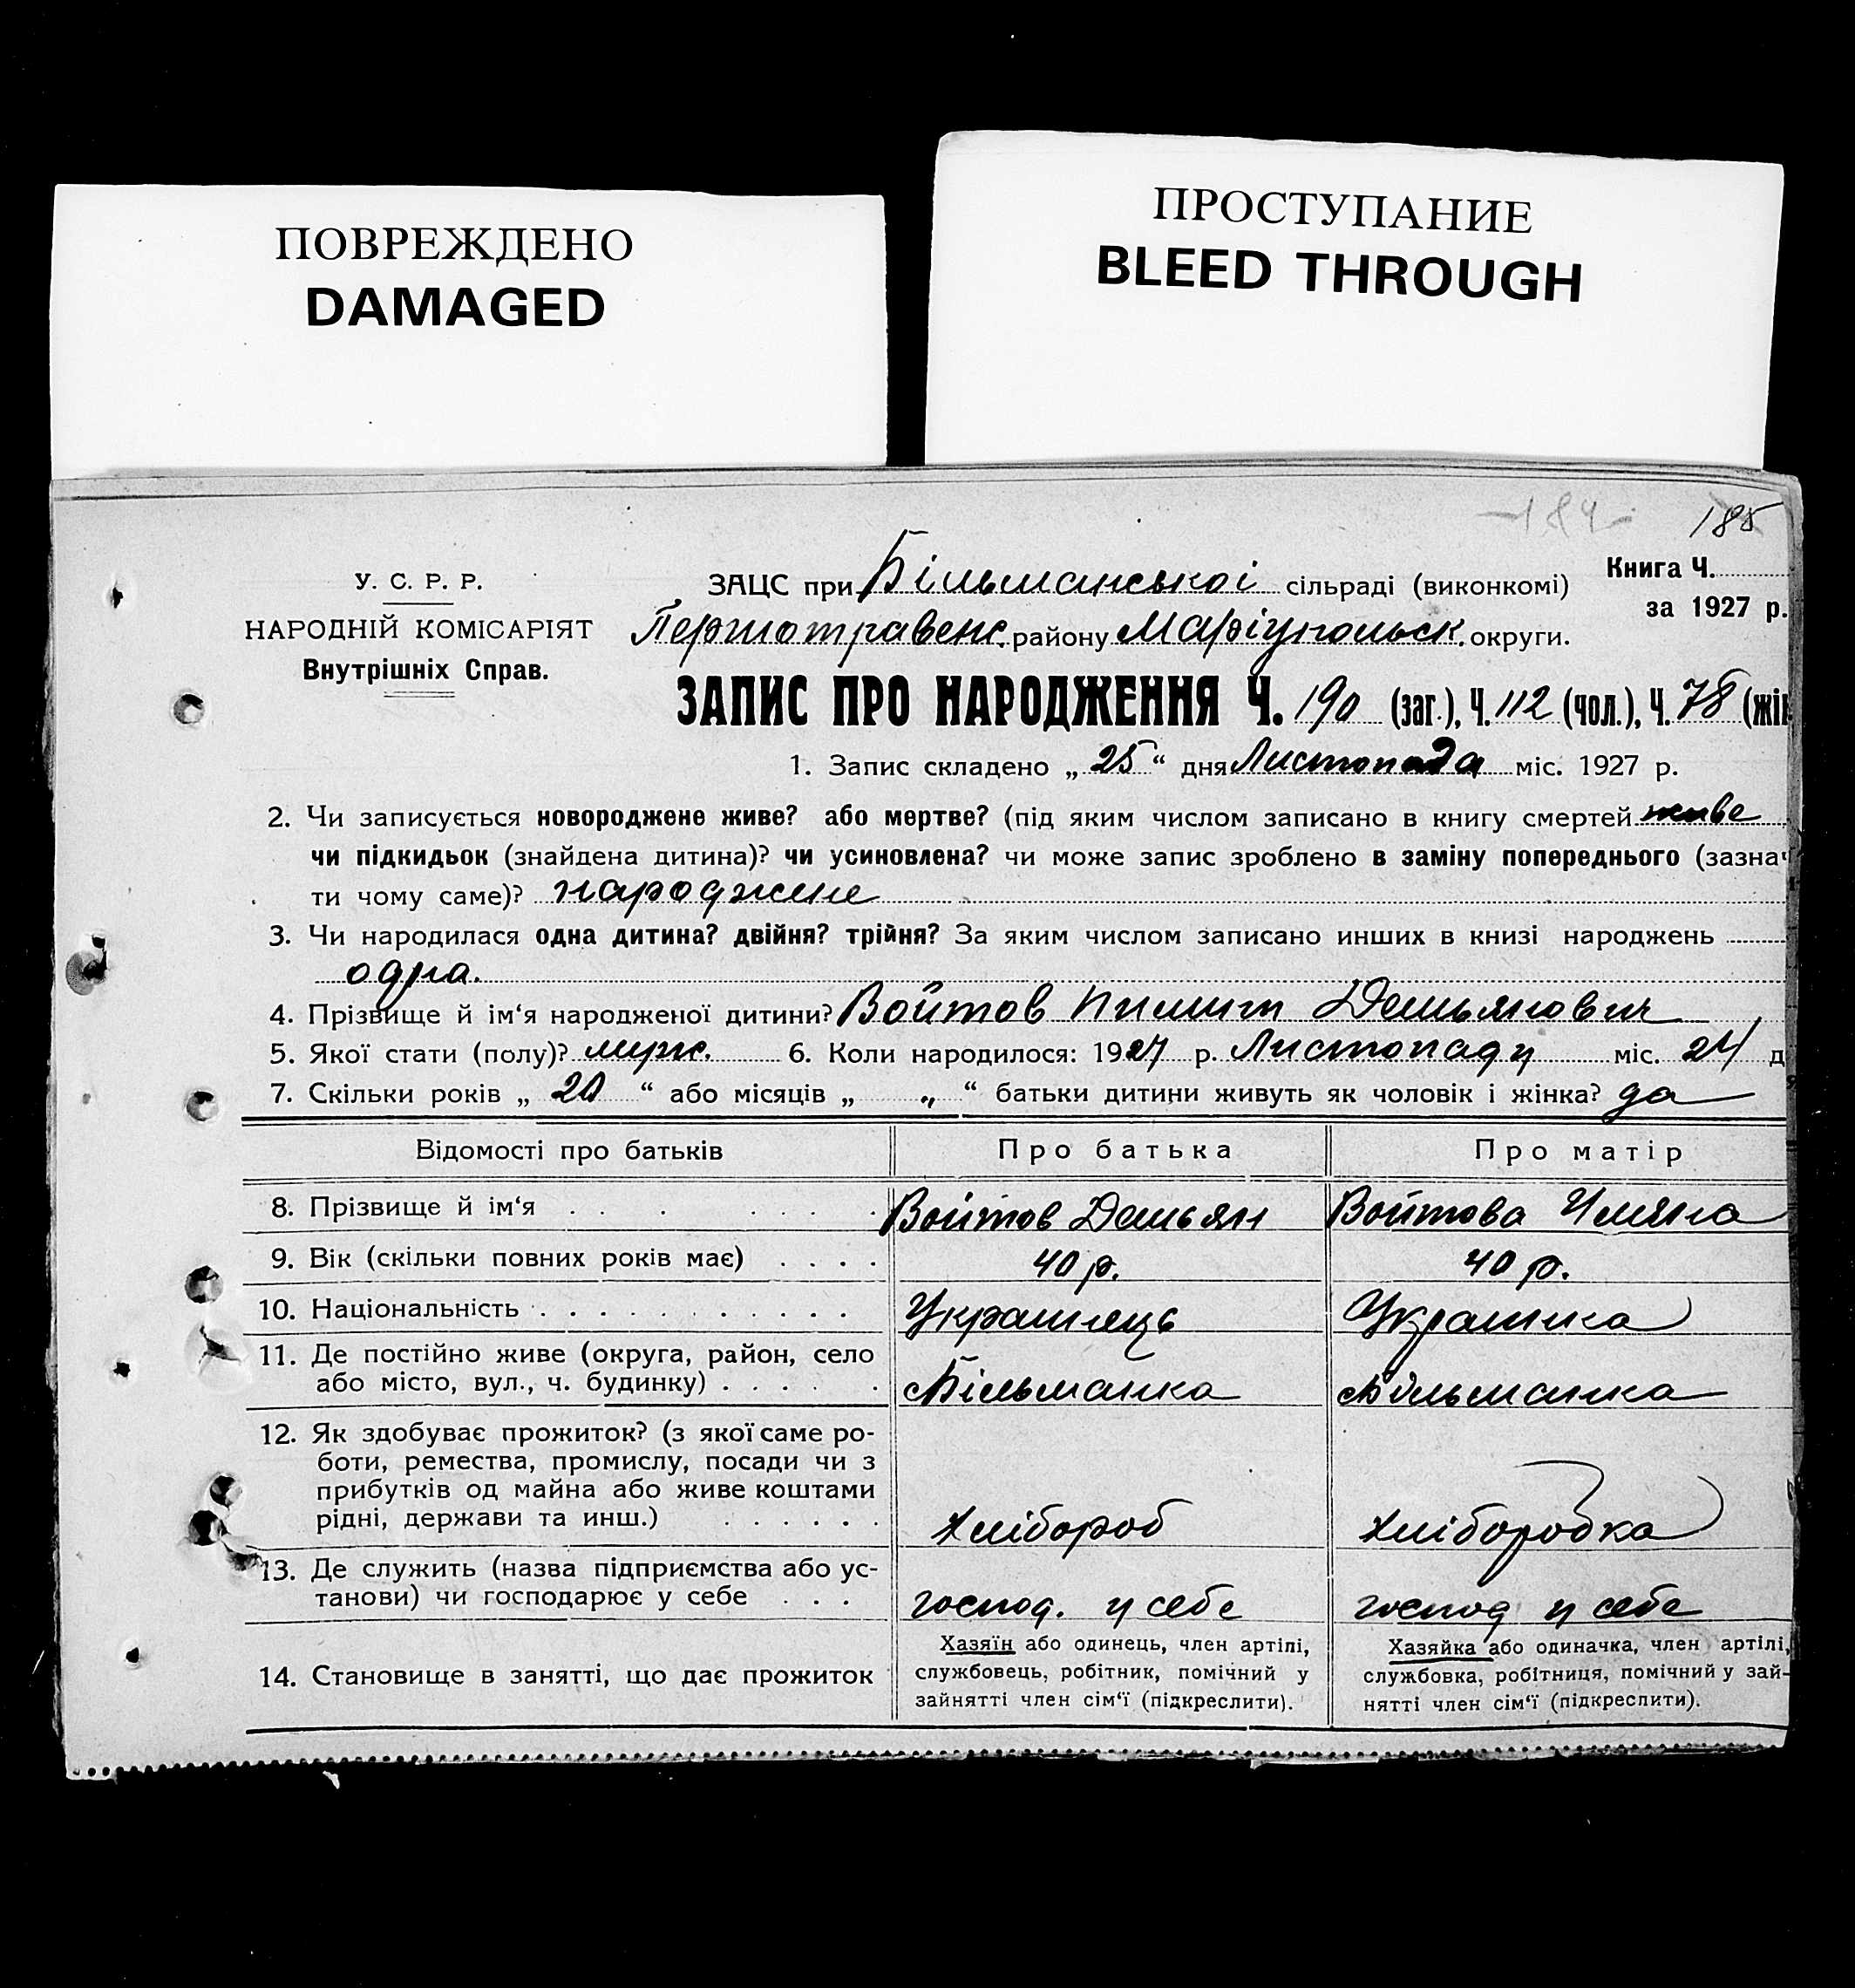 ПОВРЕЖДЕНО
DAMAGED
ПРОСТУПАНИЕ
BLEED THROUGH
184
185
У. С. Р. Р.
НАРОДНІЙ КОМІСАРІЯТ
Внутрішніх Справ.
ЗАЦС при Більманської сільраді (виконкомі)
Книга Ч.
за 1927 р.
Першотравенс. району Маріупольськ. округи.
ЗАПИС ПРО НАРОДЖЕННЯ Ч. 190 (заг.), Ч. 112 (чол.), Ч. 78 (жін
1. Запис складено „ 25 “ дня Листопада міс. 1927 р.
2. Чи записується новороджене живе? або мертве? (під яким числом записано в книгу смертей живе
чи підкидьок (знайдена дитина)? чи усиновлена? чи може запис зроблено в заміну попереднього (зазнач
ти чому саме)? народжене
3. Чи народилася одна дитина? двійня? трійня? За яким числом записано инших в книзі народжень
одна.
4. Прізвище й ім‘я народженої дитини? Войтов Пилип Демьянович
5. Якої стати (полу)? муж. 6. Коли народилося: 1927 р. Листопаду міс. 24 д
7. Скільки років „ 20 “ або місяців „ „ “ батьки дитини живуть як чоловік і жінка? да
Відомості про батьків Про батька Про матір
8. Прізвище й ім‘я . . . . . . . Войтов Демьян Войтова
9. Вік (скільки повних років має) . . . . 40 р. 40 р.
10. Національність . . . . . . . . . . . Українець Українка
11. Де постійно живе (округа, район, село
або місто, вул., ч. будинку) . . . . . Більманка Більманка
12. Як здобуває прожиток? (з якої саме ро-
боти, ремества, промислу, посади чи з
прибутків од майна або живе коштами
рідні, держави та инш.) . . . . . . Хлібороб Хліборобка
13. Де служить (назва підприємства або ус-
танови) чи господарює у себе . . . господ. у себе господ у себе
14. Становище в занятті, що дає прожиток
Хазяїн або одинець, член артілі,
службовець, робітник, помічний у
зайнятті член сім‘ї (підкреслити).
Хазяйка або одиначка, член артілі,
службовка, робітниця, помічний у зай-
нятті член сім‘ї (підкреслити).